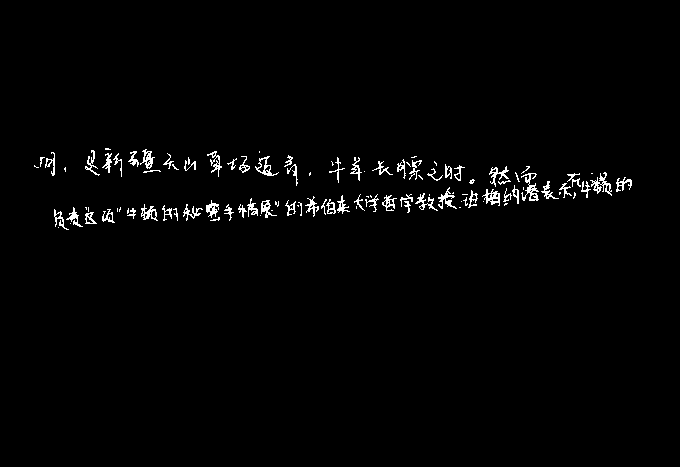 5月，是新疆天山草场返青，牛羊长膘之时。然而，
负责这项“牛顿的秘密手稿展”的希伯来大学哲学教授班梅纳潜表示，牛顿的